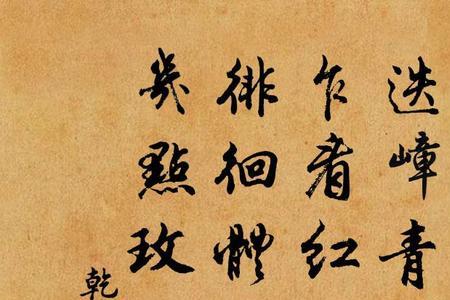 迭嶂青
乍看红
徘徊体
几點玫
乾